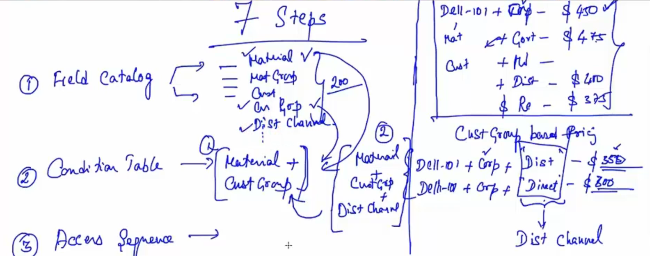 7 Steps
① Field Catalog
Material
Mat Group
Cust
Cus Grop
Dist Channel
200
② Condition Table
①
Material +
CustGroup
②
Material
+
CustGrp
+
Dist Channel
③ Access Sequence
Dell-101 + Corp - $ 450
Mat + Gort - $ 475
Cust +
+ Dist - $ 400
$ Re - $ 375
Cust Group based
Dell-101 + Corp + "Dist" - $ 350
Dell-101 + Corp + "Direct" - $ 300
Dist Channel